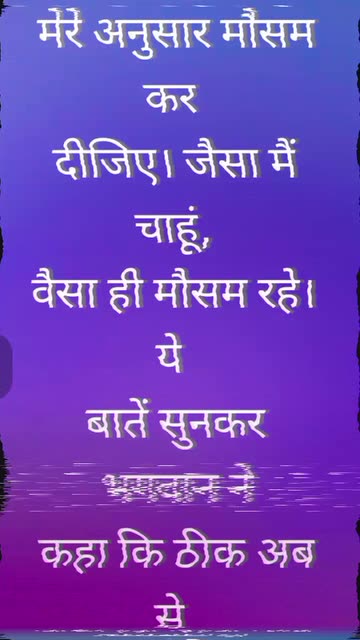 मेरे अनुसार मौसम
कर
दीजिए। जैसा मैं
चाहूं,
वैसा ही मौसम रहे।
ये
बातें सुनकर
भगवान ने
कहा कि ठीक अब
से